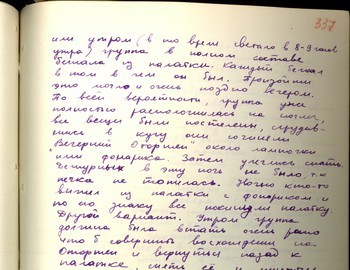 337
или утром (в это время светало в 8-9 часов
утра) группа в полном составе
бежала из палатки. Каждый бежал
в том в чем он был. Произойти
это могло и очень поздно вечером.
По всей вероятности, группа уже
полностью расположилась на ночлег,
все вещи были постелены, сгрудив-
шись в кучу они сочинили
"Вечерний Отортен" около лампочки
или фонарика. Затем улеглись спать.
Дежурных в эту ночь не было, т.к
печка не топилась. Ночью кто-то
вышел из палатки с фонариком и
по его знаку все покинули палатку.
Другой вариант. Утром группа
должна была встать очень рано
чтоб совершить восхождение на
Отортен и вернуться назад к
палатке, снять её и